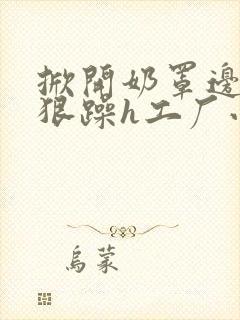 掀開奶罩邊
狠躁h工厂
烏蒙